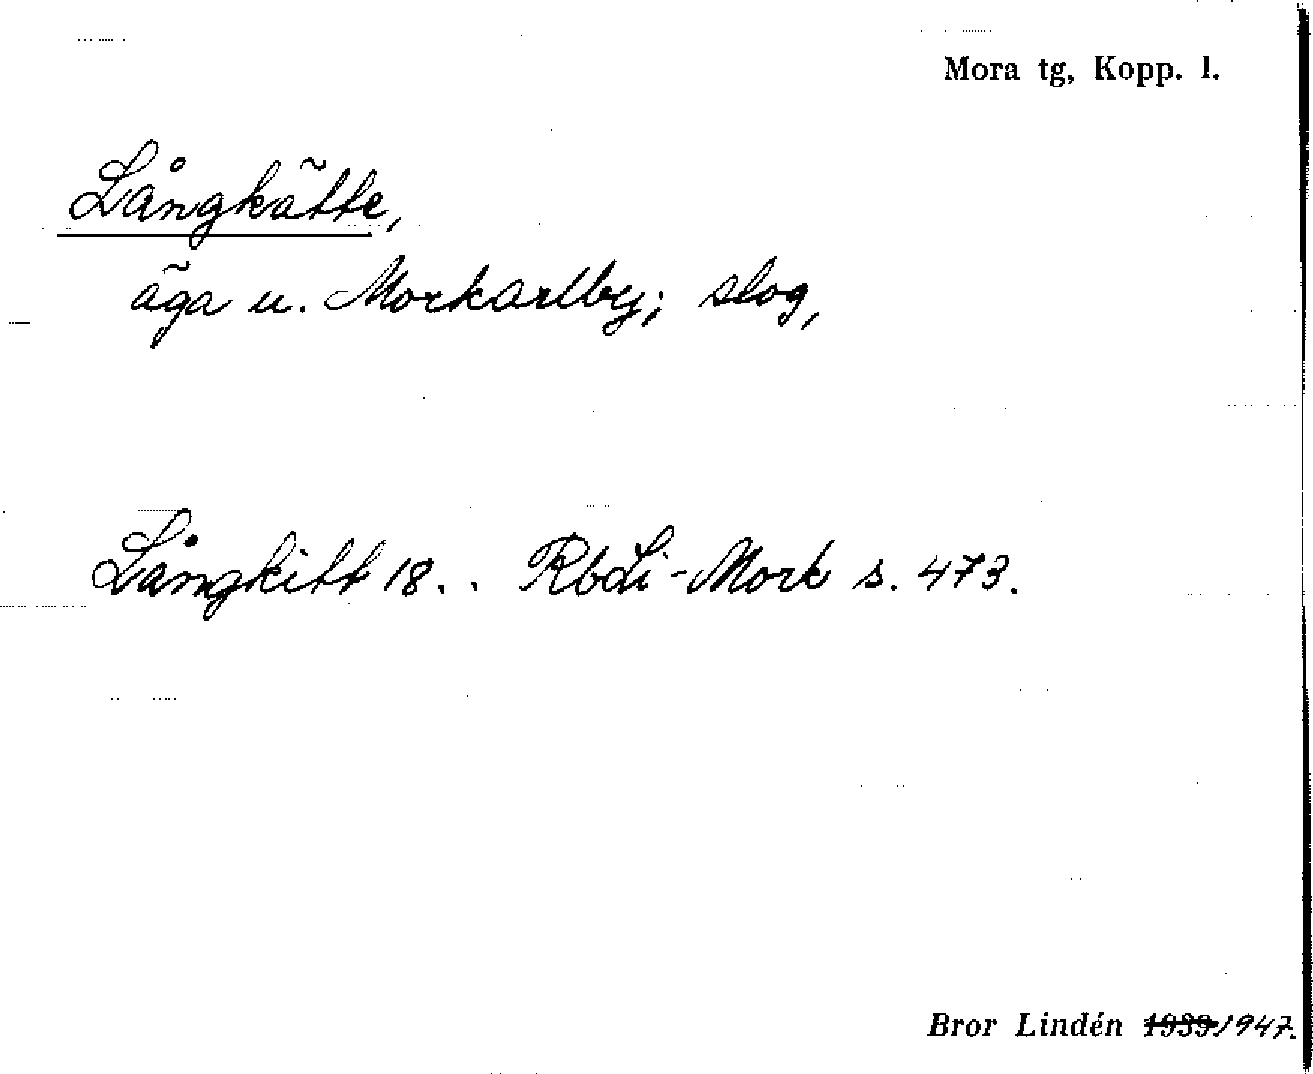 Mora tg, Kopp. l.
Långkätte,
äga u. Morkarlby; slog,
Långkitt 18.. RbLi-Mork s. 473.
Bror Lindén 1939 1947.